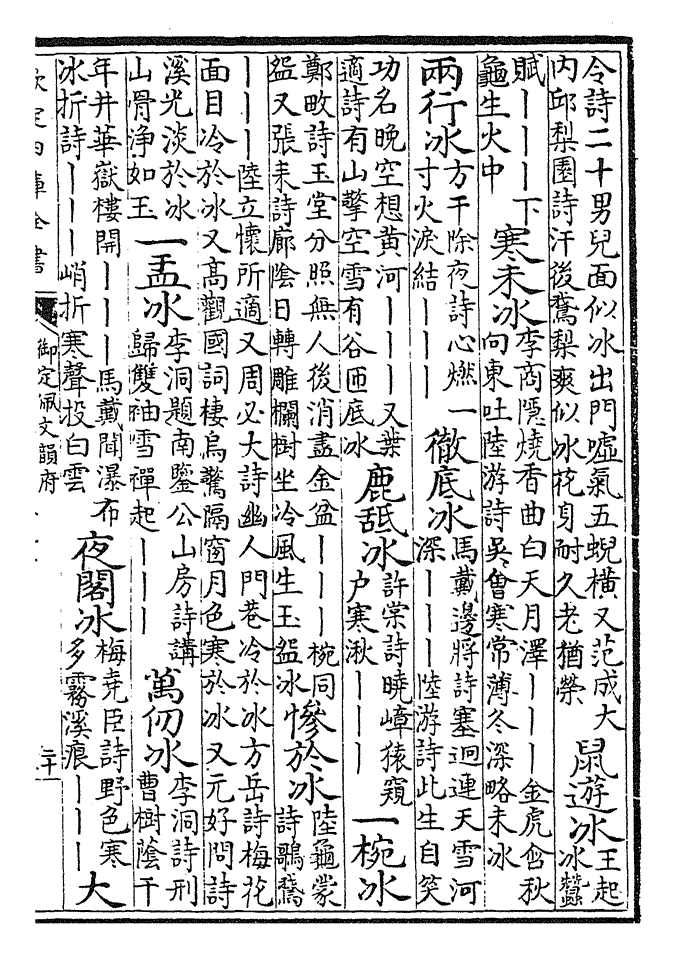 令詩二十男兒面似冰出門噓氣五蜺橫又范成大
內邱梨園詩汗後鵞梨爽似冰花身耐久老猶榮
鼠遊冰
王起
冰蠶
賦｜｜｜下
龜生火中
寒未冰
李商隱燒香曲白天月澤｜｜｜金虎含秋
向東吐陸游詩吳會寒常薄冬深略未冰
兩行冰
方干除夜詩心燃一
寸火淚結｜｜｜
徹底冰
馬戴邊將詩塞迥連天雪河
深｜｜｜陸游詩此生自笑
功名晚空想黃河｜｜｜又葉
適詩有山擎空雪有谷匝底冰
鹿舐冰
許棠詩曉嶂猿窺
戶寒湫｜｜｜
一椀冰
鄭畋詩玉堂分照無人後消盡金盆｜｜｜椀同
盌又張耒詩廊陰日轉雕欄樹坐冷風生玉盌冰
慘於冰
陸龜蒙
詩鶗鵞
｜｜｜陸立懷所適又周必大詩幽人門巷冷於冰方岳詩梅花
面目冷於冰又高觀國詞棲烏驚隔窗月色寒於冰又元好問詩
溪光淡於冰
山骨淨如玉
一盂冰
李洞題南鑒公山房詩講
歸雙袖雪禪起｜｜｜
萬仞冰
李洞詩刑
曹樹陰千
年井華嶽樓開｜｜｜馬戴聞瀑布
冰折詩｜｜｜峭折寒聲投白雲
夜閣冰
梅堯臣詩野色寒
多霧溪痕｜｜｜
大
欽定四庫全書
御定佩文韻府